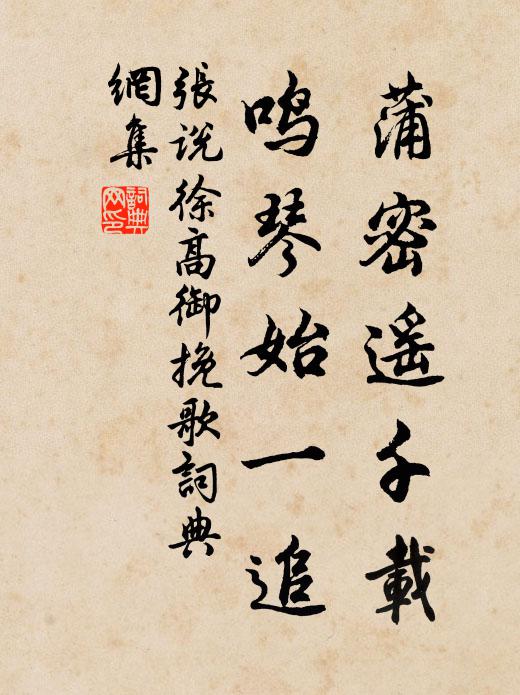 蒲密遥千載
鸣琴始一追
張説徐高御挽歌詞典
網集
詞典網印